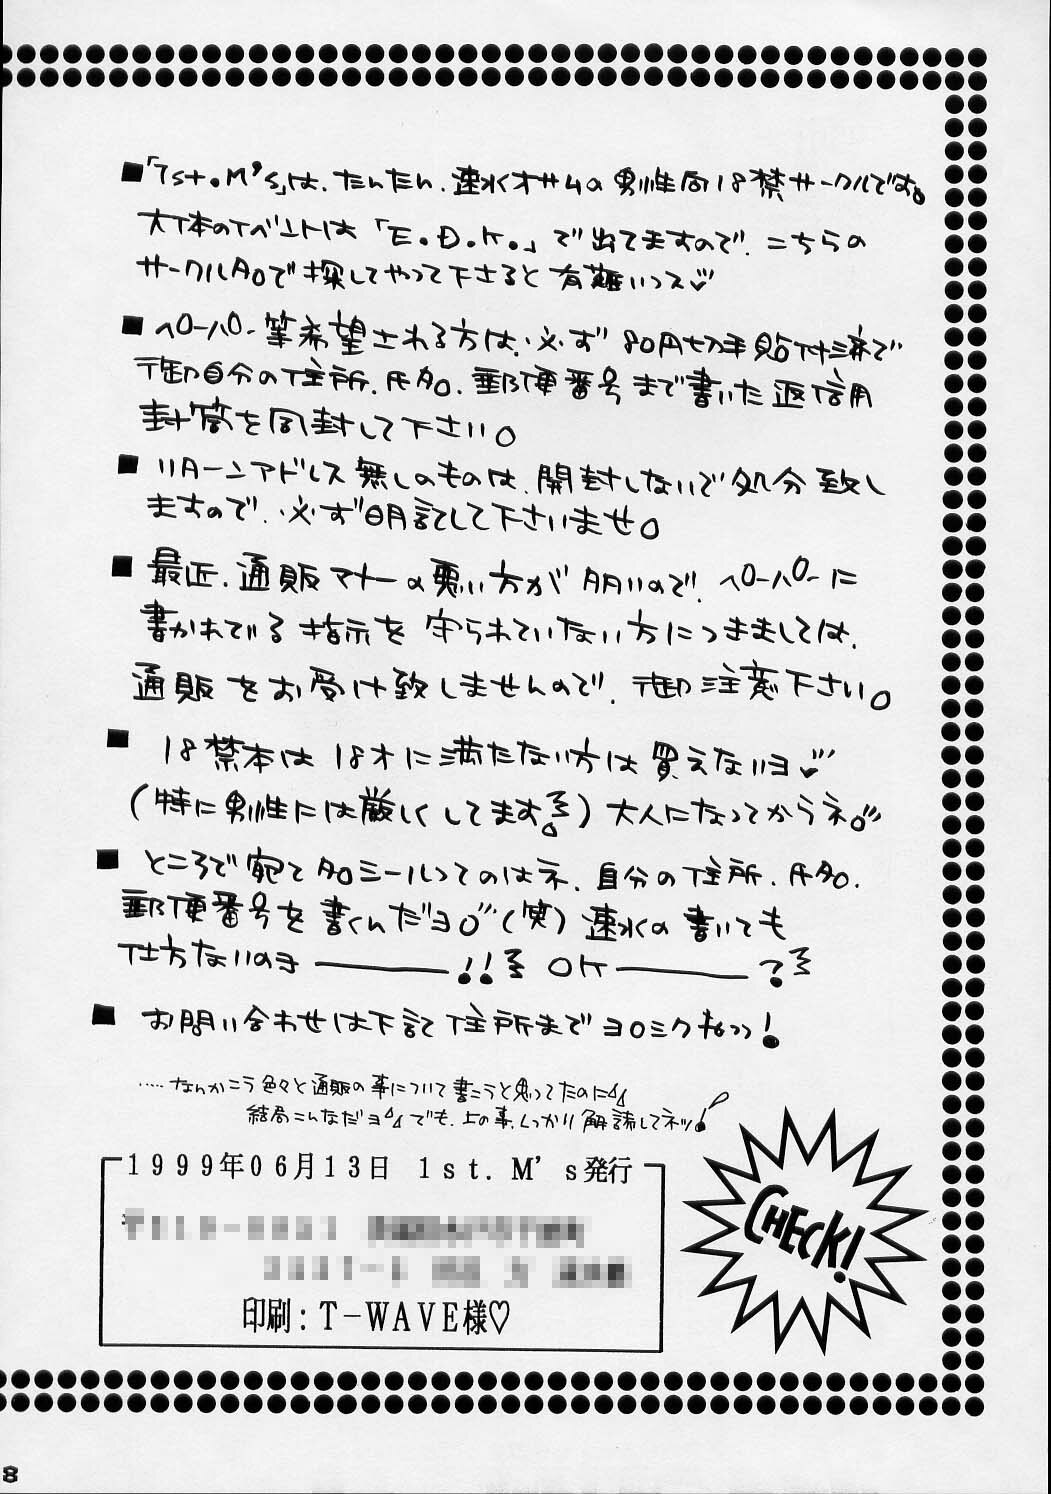 ■「1st.M's」は、たんたん、速水オサムの男性向18禁サークルです。
大体のイベントは「E.D.K.」で出てますので、こちらの
サークル名で探してやって下さると有難いっス♡
■ペーパー等希望される方は、必ず80円切手貼付済で
御自分の住所、氏名、郵便番号まで書いた返信用
封筒を同封して下さい。
■リターンアドレス無しのものは、開封しないで処分致し
ますので、必ず明記して下さいませ。
■最近、通販マナーの悪い方が多いので、ペーパーに
書かれている指示を守られていない方につきましては、
通販をお受け致しませんので、御注意下さい。
■18禁本は18才に満たない方は買えないヨ♡
(特に男性には厳しくしてます!)大人になってからネ。
■ところで宛て名シールってのはネ、自分の住所、氏名、
郵便番号を書くんだヨ。(笑)速水の書いても
仕方ないのョ――!! OK――?
■お問い合わせは下記住所までヨロシクねっっ!
……なんかこう色々と通販の事について書こうと思ってたのに
結局こんなだヨ でも、上の事、しっかり解読してネッ!
1999年06月13日 1st. M's発行
印刷：T-WAVE様♡
CHECK!
8